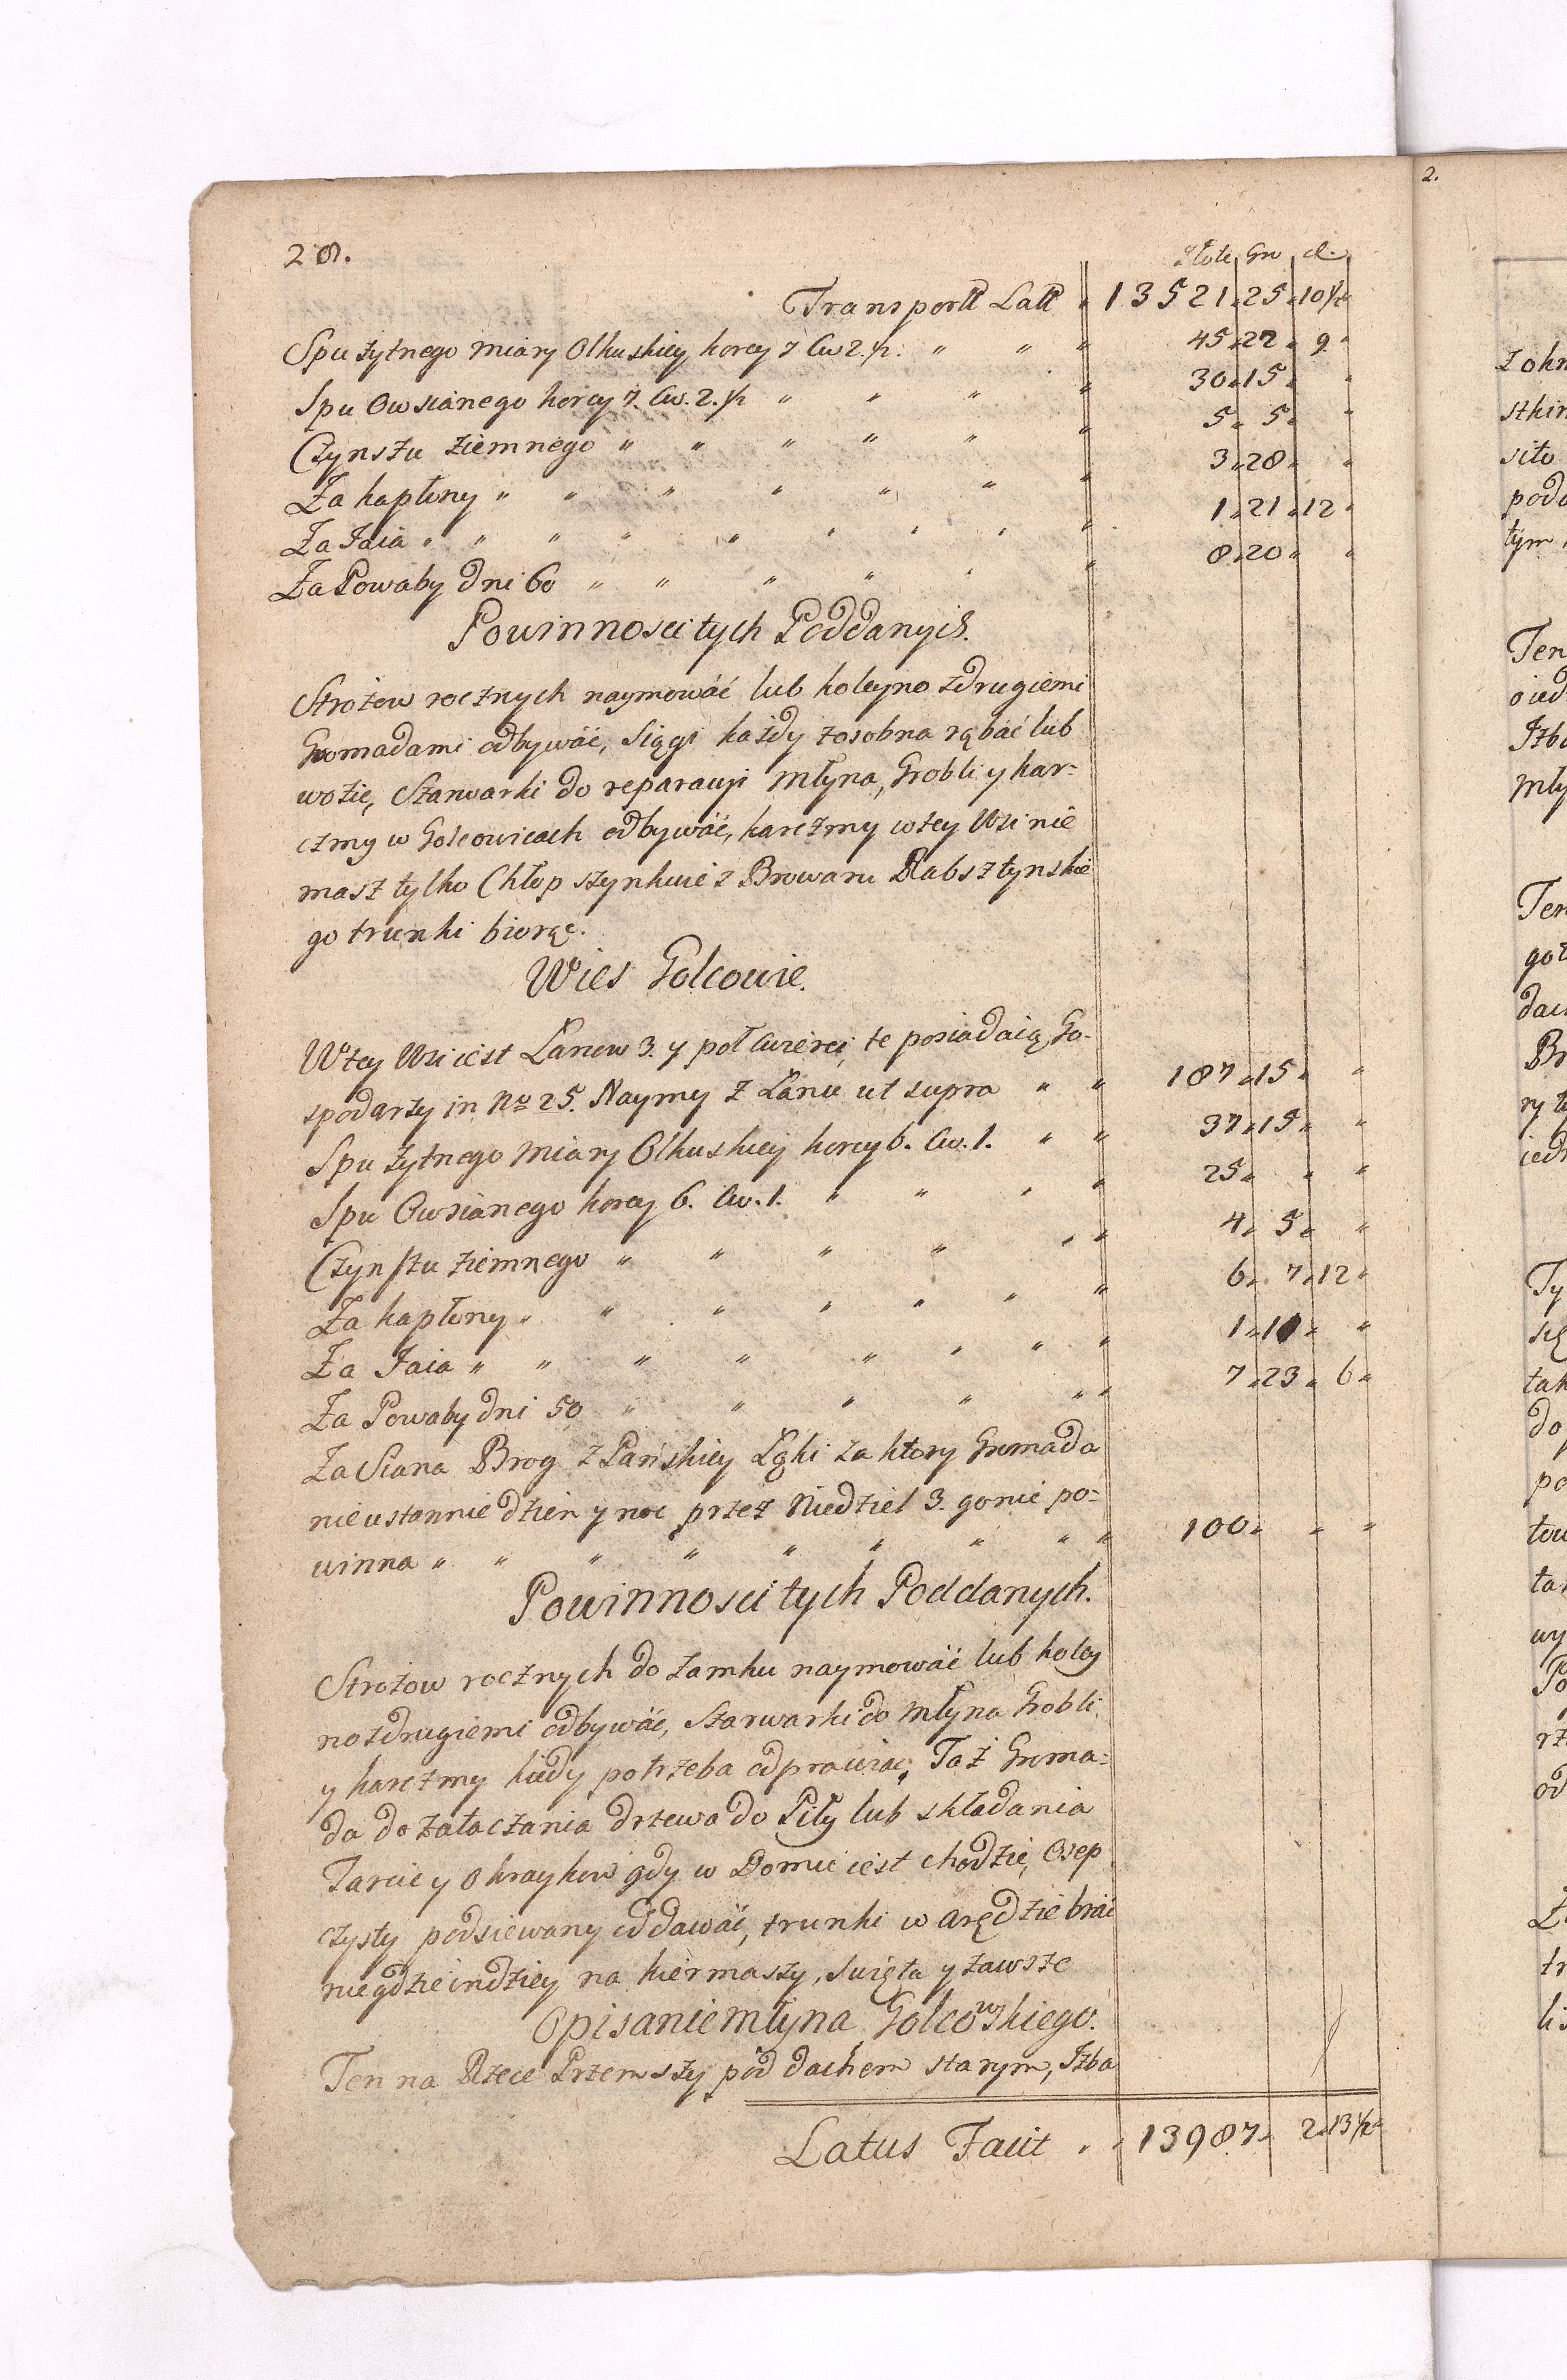 28.
Złote Gr d.
Transportt Latt 13521 25 10 1/2
Spu żytnego miary Olkuskiey korcy 7 Cw 2.1/2. 45 27 9
Spu Owsianego korcy 7. Cw. 2. 1/2 30 15
Czynszu ziemnego 5 5
Za kapłony 3 28
Za Jaia 1 21 12
Za Powaby dni 60 8 20
Powinnosci tych Poddanych.
Strożow rocznych naymować lub koleyno zdrugiemi
Gromadami odbywać, Siągi każdy zosobna rąbać lub
wozić, Szarwarki do reparacyi Młyna, Grobli y kar-
czmy w Golcowicach odbywać, karczmy wtey Wsi nie
masz tylko Chłop szynkuie z Browaru Rabsztynskie
go trunki biorąc.
Wies Golcowie.
Wtey Wsi iest Łanow 3. y poł Cwierci, te posiadaią Go-
spodarzy in No 25. Naymy z Łanu ut supra 187 15
Spu żytnego Miary Olkuskiey korcy 6. Cw. 1. 37 15
Spu Owsianego korcy 6. Cw. 1. 25
Czynszu ziemnego 4 5
Za kapłony 6 7 12
Za Jaia 1 11
Za Powaby dni 50 7 23 6
Za Siana Brog z Pańskiey Łąki za ktory Gromada
nieustannie dzien y noc przez Niedziel 3. gonić po-
winna 100
Powinnosci tych Poddanych.
Strożow rocznych do zamku naymować lub koley
no zdrugiemi odbywać, Szarwarki do Młyna Grobli
y karczmy kiedy potrzeba odprawiać, Taż Groma-
da do zataczania drzewa do Piły lub składania
Tarcic y Okraykow gdy w Domu iest chodzić, Osep
czysty podsiewany oddawać, trunki w arędzie brać
niegdzieindziey na kiermaszy, swięta y zawsze
Opisanie młyna Golcowskiego.
Ten na Rzece Przemszy pod dachem starym, Izba
Latus Facit 13987 2 13 1/2
2.